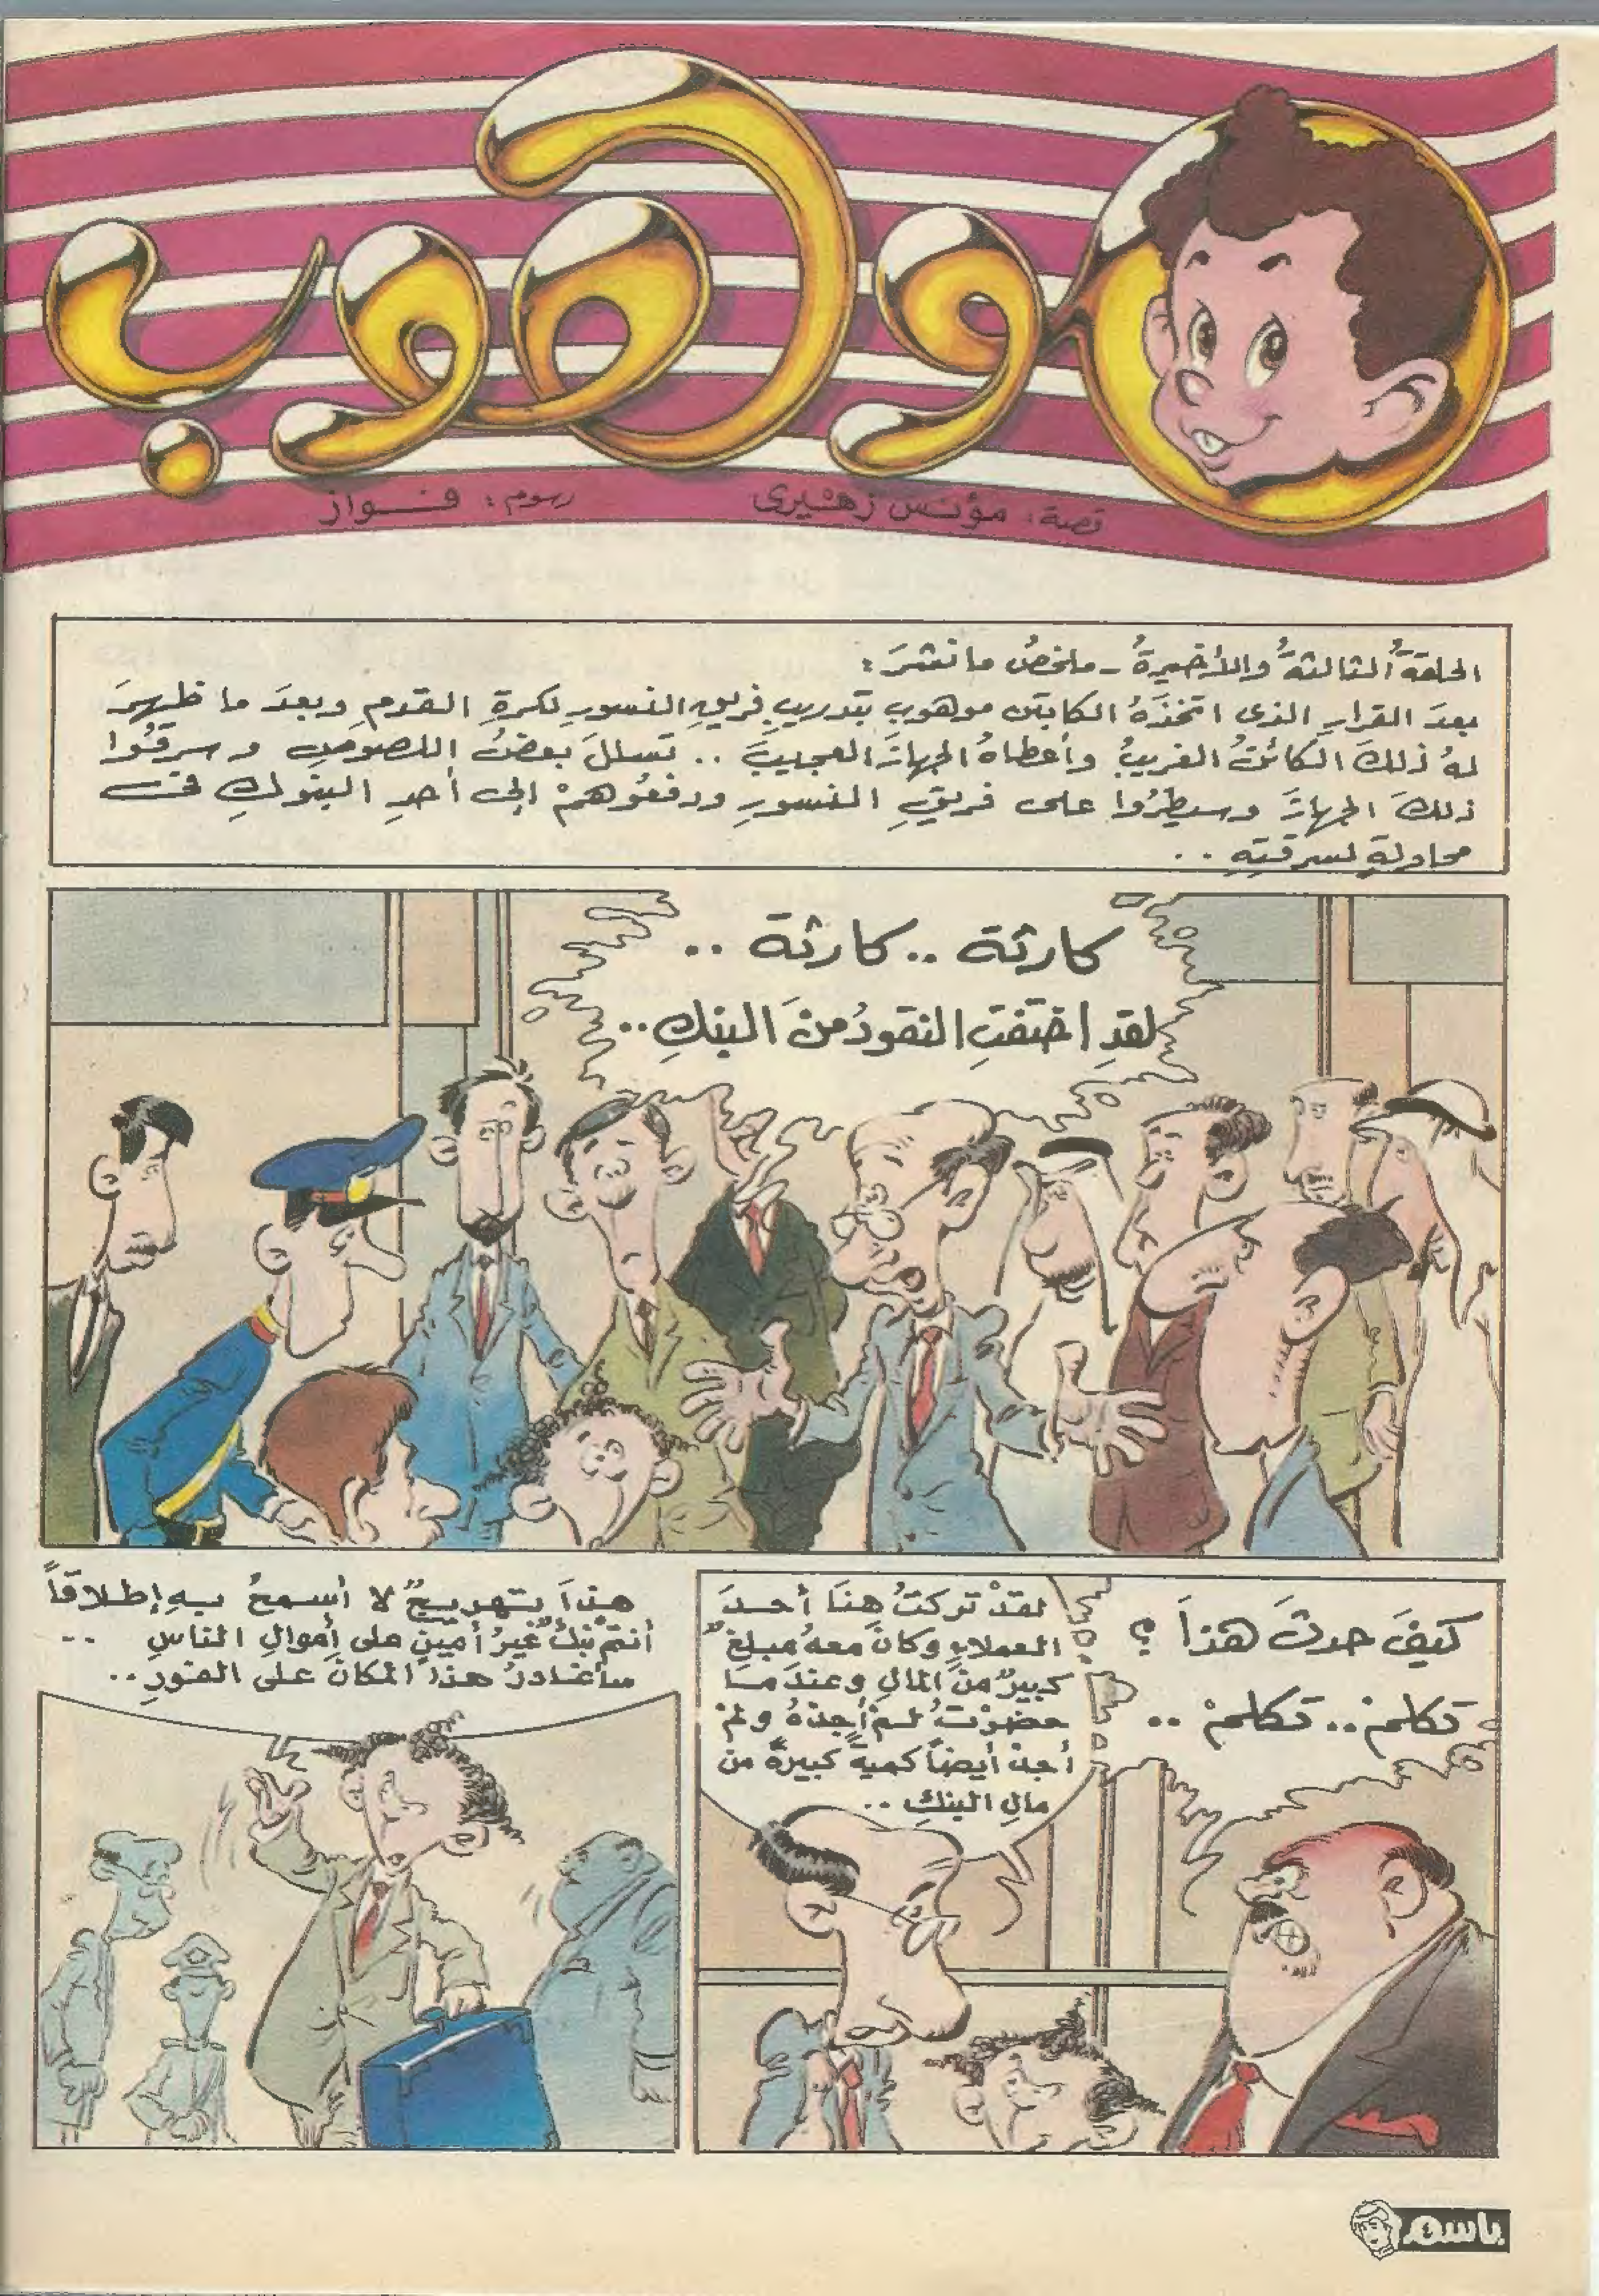 موهوب
قصة: مؤنس زهيري
رسوم: فواز
الحلقةُ الثالثةُ والأخيرةُ - ملخصُ ما نُشرَ:
بعدَ القرارِ الذى اتخذَهُ الكابتن موهوب بتدريبِ فريقِ النسورِ لكرةِ القدمِ وبعدَ ما ظهرَ
لهُ ذلكَ الكائنُ الغريبُ وأعطاهُ الجهازَ العجيبَ .. تسللَ بعضُ اللصوصِ وسرقُوا
ذلكَ الجهازَ وسيطرُوا على فريقِ النسورِ ودفعُوهمْ إلى أحدِ البنوكِ فى
محاولةٍ لسرقتِهِ ..
كارثة .. كارثة ..
لقدِ اختفتِ النقودُ منَ البنكِ ..
كيفَ حدثَ هذا ؟
تكلمْ .. تكلمْ ..
لقدْ تركتُ هنا أحدَ
العملاءِ وكانَ معهُ مبلغٌ
كبيرٌ منَ المالِ وعندَما
حضرْتُ لم أجدْهُ ولمْ
أجدْ أيضاً كميةً كبيرةً من
مالِ البنكِ ..
هذا تهريجٌ لا أسمحُ بهِ إطلاقاً
أنتمْ بنكٌ غيرُ أمينٍ على أموالِ الناسِ ..
سأغادرُ هذا المكانَ على الفورِ ..
باسم